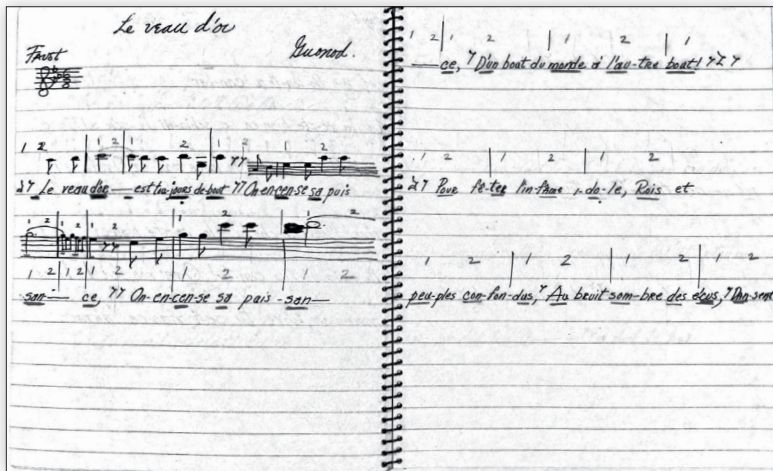 Le veau d'or
Faust
Guonod.
1 2 1 2 1 2 1 2 1
Le veau d'or — est tou-jours de-bout On en-cen-se sa puis
1 2 1 2 1 2 1 2
1 2 1 2 1 2 1 2
san — ce, On en-cen-se sa puis-san —
1 2 1 2 1 2 1
— ce, D'un bout du monde à l'au-tre bout!
1 2 1 2 1 2
Pour fê-ter l'in-fâme i-do-le, Rois et
1 2 1 2 1 2 1 2
peu-ples con-fon-dus, Au bruit som-bre des écus, Dan-sent